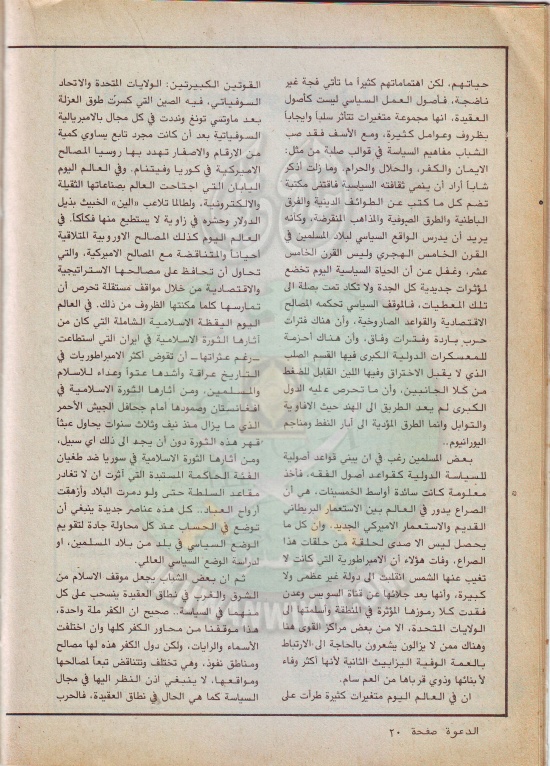 حياتهم، لكن اهتماماتهم كثيراً ما تأتي فجة غير
ناضجة، فأصول العمل السياسي ليست كأصول
العقيدة، انها مجموعة متغيرات تتأثر سلباً وايجاباً
بظروف وعوامل كثيرة، ومع الأسف فقد صب
الشباب مفاهيم السياسة في قوالب صلبة من مثل:
الايمان والكفر، والحلال والحرام. وما زلت أذكر
شاباً أراد أن ينمي ثقافته السياسية فاقتنى مكتبة
تضم كل ما كتب عن الطوائف الدينية والفرق
الباطنية والطرق الصوفية والمذاهب المنقرضة، وكأنه
يريد أن يدرس الواقع السياسي لبلاد المسلمين في
القرن الخامس الهجري وليس القرن الخامس
عشر، وغفل عن أن الحياة السياسية اليوم تخضع
لمؤثرات جديدية كل الجدة ولا تكاد تمت بصلة الى
تلك المعطيات، فالموقف السياسي تحكمه المصالح
الاقتصادية والقواعد الصاروخية، وأن هناك فترات
حرب باردة وفترات وفاق، وأن هناك أحزمة
للمعسكرات الدولية الكبرى فيها القسم الصلب
الذي لا يقبل الاختراق وفيها اللين القابل للضغط
من كلا الجانبين، وأن ما تحرص عليه الدول
الكبرى لم يعد الطريق الى الهند حيث الافاوية
والتوابل وانما الطرق المؤدية الى آبار النفط ومناجم
اليورانيوم..
بعض المسلمين رغب في ان يبني قواعد أصولية
للسياسة الدولية كقواعد أصول الفقه، فأخذ
معلومة كانت سائدة أواسط الخمسينات، هي أن
الصراع يدور في العالم بين الاستعمار البريطاني
القديم والاستعمار الاميركي الجديد، وإن كل ما
يحصل ليس الا صدى لحلقة من حلقات هذا
الصراع، وفات هؤلاء أن الامبراطورية التي كانت لا
تغيب عنها الشمس انقلبت الى دولة غير عظمى ولا
كبيرة، وأنها بعد جلائها عن قناة السويس وعدن
فقدت كلا رموزها المؤثرة في المنطقة وأسلمتها الى
الولايات المتحدة، الا من بعض مراكز القوى هنا
وهناك ممن لا يزالون يشعرون بالحاجة الى الارتباط
بالعمة الوفية اليزابيث الثانية لأنها أكثر وفاء
لأبنائها وذوي قرباها من العم سام.
ان في العالم اليوم متغيرات كثيرة طرأت على
القوتين الكبيرتين: الولايات المتحدة والاتحاد
السوفياتي، فيه الصين التي كسرت طوق العزلة
بعد ماوتسي تونغ ونددت في كل مجال بالامبريالية
السوفياتية بعد أن كانت مجرد تابع يساوي كمية
من الارقام والاصفار تهدد بها روسيا المصالح
الاميركية في كوريا وفيتنام. وفي العالم اليوم
اليابان التي اجتاحت العالم بصناعاتها الثقيلة
والالكترونية، ولطالما تلاعب «الين» الخبيث بذيل
الدولار وحشره في زاوية لا يستطيع منها فكاكاً. في
العالم اليوم كذلك المصالح الاوروبية المتلاقية
أحياناً والمتناقضة مع المصالح الاميركية، والتي
تحاول أن تحافظ على مصالحها الاستراتيجية
والاقتصادية من خلال مواقف مستقلة تحرص أن
تمارسها كلما مكنتها الظروف من ذلك. في العالم
اليوم اليقظة الاسلامية الشاملة التي كان من
آثارها الثورة الاسلامية في ايران التي استطاعت
-رغم عثراتها- أن تقوض أكثر الامبراطوريات في
التاريخ عراقة وأشدها عتواً وعداء للاسلام
والمسلمين، ومن آثارها الثورة الاسلامية في
افغانستان وصمودها أمام جحافل الجيش الأحمر
الذي ما يزال منذ نيف وثلاث سنوات يحاول عبثاً
قهر هذه الثورة دون أن يجد الى ذلك اي سبيل،
ومن آثارها الثورة الاسلامية في سوريا ضد طغيان
الفئة الحاكمة المستبدة التي آثرت ان لا تغادر
مقاعد السلطة حتى ولو دمرت البلاد وأزهقت
أرواح العباد.. كل هذه عناصر جديدة ينبغي أن
توضع في الحساب عند كل محاولة جادة لتقويم
الوضع السياسي في بلد من بلاد المسلمين، او
لدراسة الوضع السياسي العالمي.
ثم ان بعض الشباب يجعل موقف الاسلام من
الشرق والغرب في نطاق العقيدة ينسحب على كل
منهما في السياسة، صحيح ان الكفر ملة واحدة،
هذا موقفنا من محاور الكفر كلها وان اختلفت
الأسماء والرايات، ولكن دول الكفر هذه لها مصالح
ومناطق نفوذ، وهي تختلف وتتناقض تبعاً لمصالحها
ومواقعها، لا ينبغي اذن النظر اليها في مجال
السياسة كما هي الحال في نطاق العقيدة، فالحرب
الدعوة صفحة ٢٠